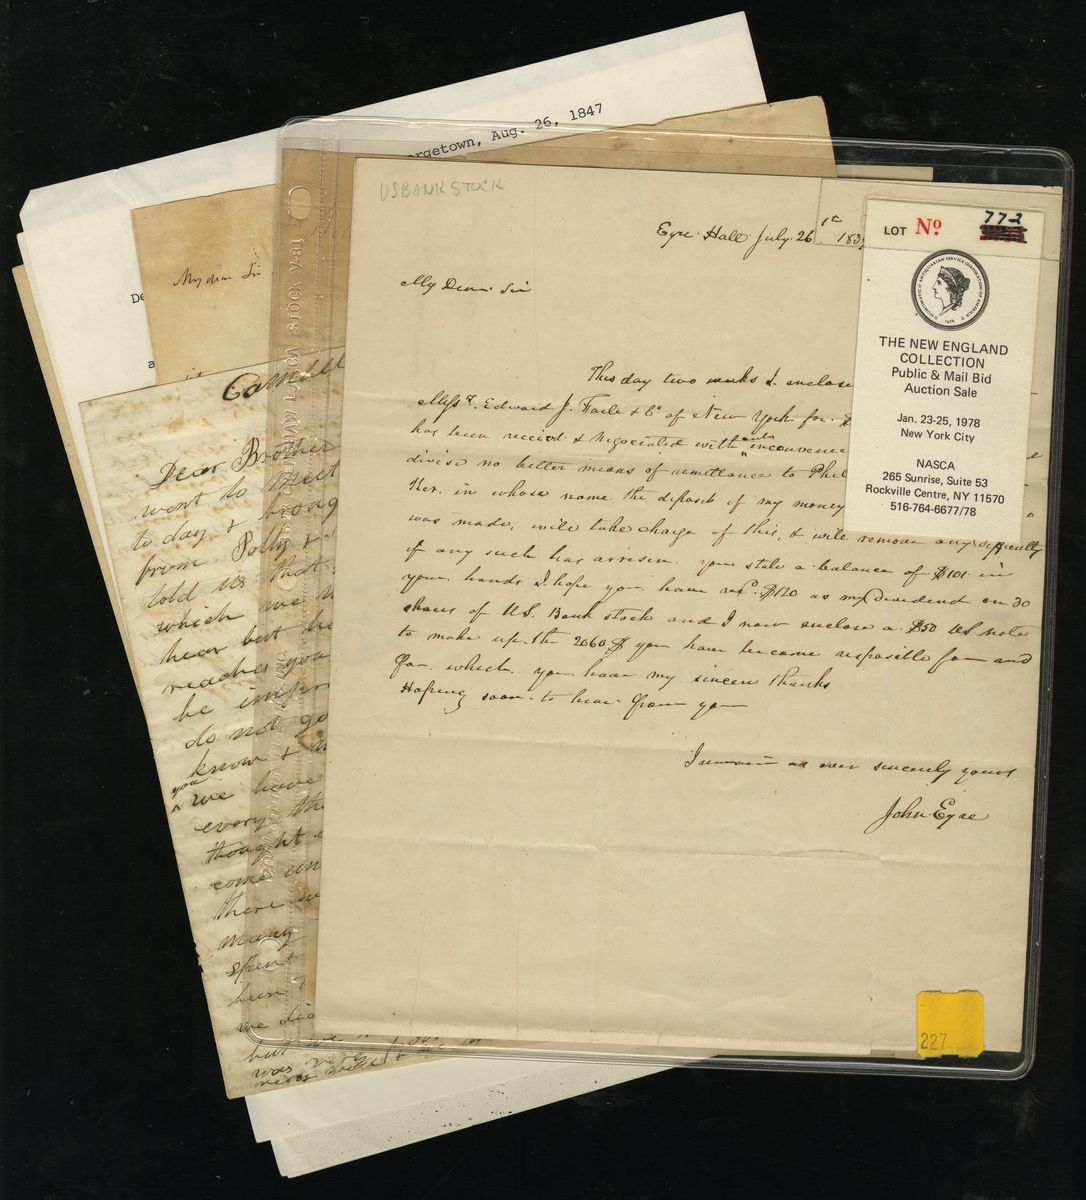 rgetown, Aug. 26, 1847
USBANK STOCK
Eyre Hall July 26th 183
LOT No 772
My Dear Sir
My dear Sir
De
a
THE NEW ENGLAND
COLLECTION
Public & Mail Bid
Auction Sale
Jan. 23-25, 1978
New York City
NASCA
265 Sunrise, Suite 53
Rockville Centre, NY 11570
516-764-6677/78
This day two weeks I enclose
Messrs. Edward J. Faile & Co of New York for $
has been received & negociated without inconvenience
divise no better means of remittance to Phil
Ker. in whose name the deposit of my money
was made, will take charge of this, & will remove any difficulty
if any such has arrisen. you state a balance of $101 in
your hands I hope you have recd. $120 as my Dividend on 30
shares of U.S. Bank stock and I now enclose a $50 US note
to make up the 2060 $ you have become resposible for and
for which you have my sincere thanks
Hoping soon to hear from you
I remain as ever sincerely yours
John Eyre
Dear Brother
went to meet
to day & broug
from Polly &
told us that
which we
hear but he
reaches you
be infor
do not go
know &
you
we have
every th
thought
come
there
many
spent
been
we did
but
was very
227